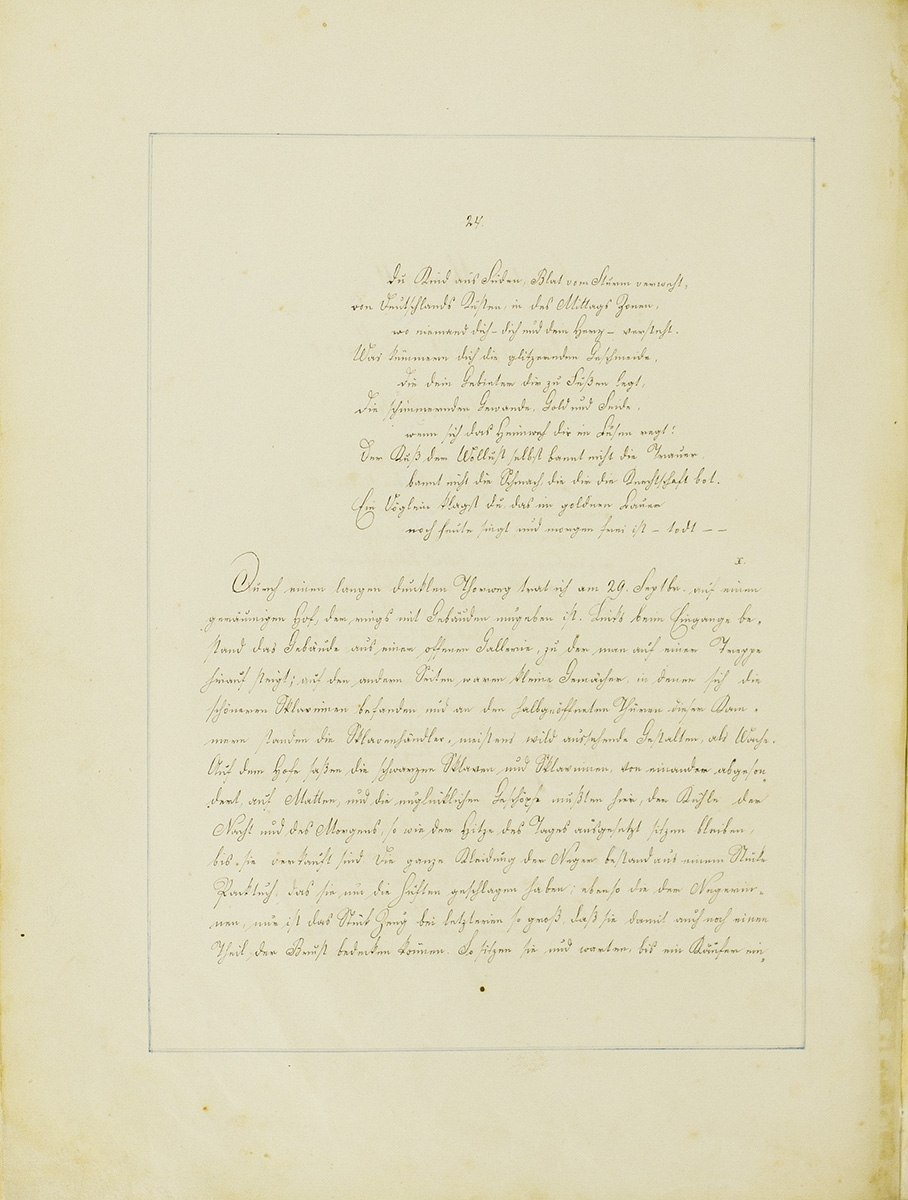 24.
Du Kind aus Süden, Blat vom Sturm verweht,
von Deutschlands Küsten, in des Mittags Zonen,
wo niemand dich – dich und dein Herz – versteht.
Was kümmern dich die glitzernden Geschmeide,
Die dein Gebieter dir zu Füßen legt,
Die schimmernden Gewande, Gold und Seide,
wenn sich das Heimweh dir im Busen regt!
Der Kuß der Wollust selbst bannt nicht die Trauer
bannt nicht die Schmach, die dir die Knechtschaft bot.
Ein Vöglein klagst du, das im goldnen Bauer
noch heute singt und morgen frei ist – todt – –
x.
Durch einen langen dunklen Thorweg trat ich am 29. Septbr. auf einen
geräumigen Hof, der rings mit Gebäuden umgeben ist. Links beim Eingange be-
stand das Gebäude aus einer offenen Gallerie, zu der man auf einer Treppe
hinauf steigt; auf den andern Seiten waren kleine Gemächer, in denen sich die
schöneren Sklavinnen befanden und an den halbgeöffneten Thüren dieser Kam-
mern standen die Sklavenhändler, meistens wild aussehende Gestalten, als Wache.
Auf dem Hofe saßen die schwarzen Sklaven und Sklavinnen, von einander abgeson-
dert, auf Matten, und die unglücklichen Geschöpfe mußten hier, der Kühle der
Nacht und des Morgens, so wie der Hitze des Tages ausgesetzt sitzen bleiben,
bis sie verkauft sind. Die ganze Kleidung der Neger bestand aus einem Stücke
Packtuch, das sie um die Hüften geschlagen haben; ebenso die der Negerin-
nen, nur ist das Stück Zeug bei letzteren so groß, daß sie damit auch noch einen
Theil der Brust bedecken können. So sitzen sie und warten, bis ein Käufer ein-